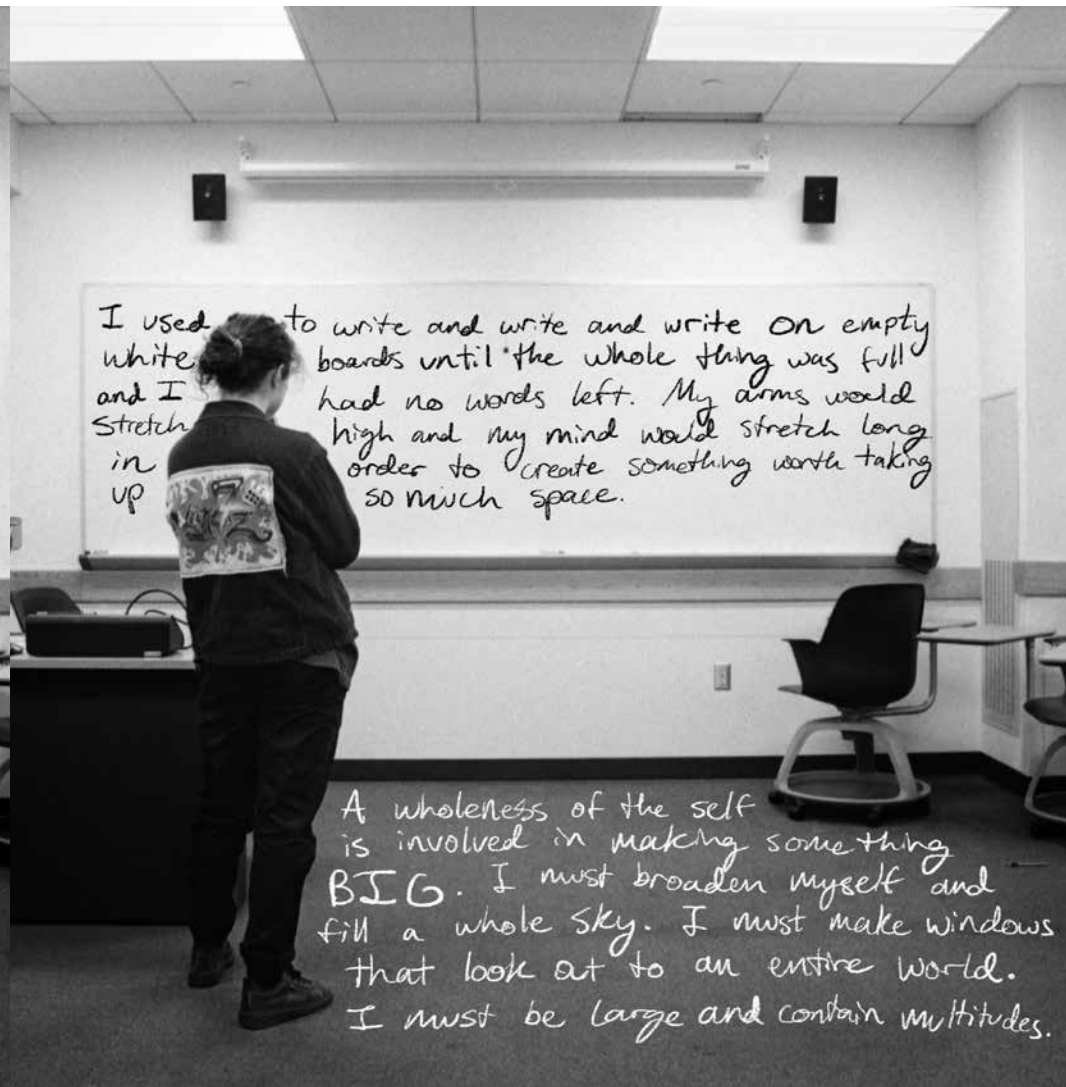 I used to write and write and write on empty
white boards until the whole thing was full
and I had no words left. My arms would
stretch high and my mind would stretch long
in order to create something worth taking
up so much space.
A wholeness of the self
is involved in making something
BIG. I must broaden myself and
fill a whole sky. I must make windows
that look out to an entire world.
I must be large and contain multitudes.